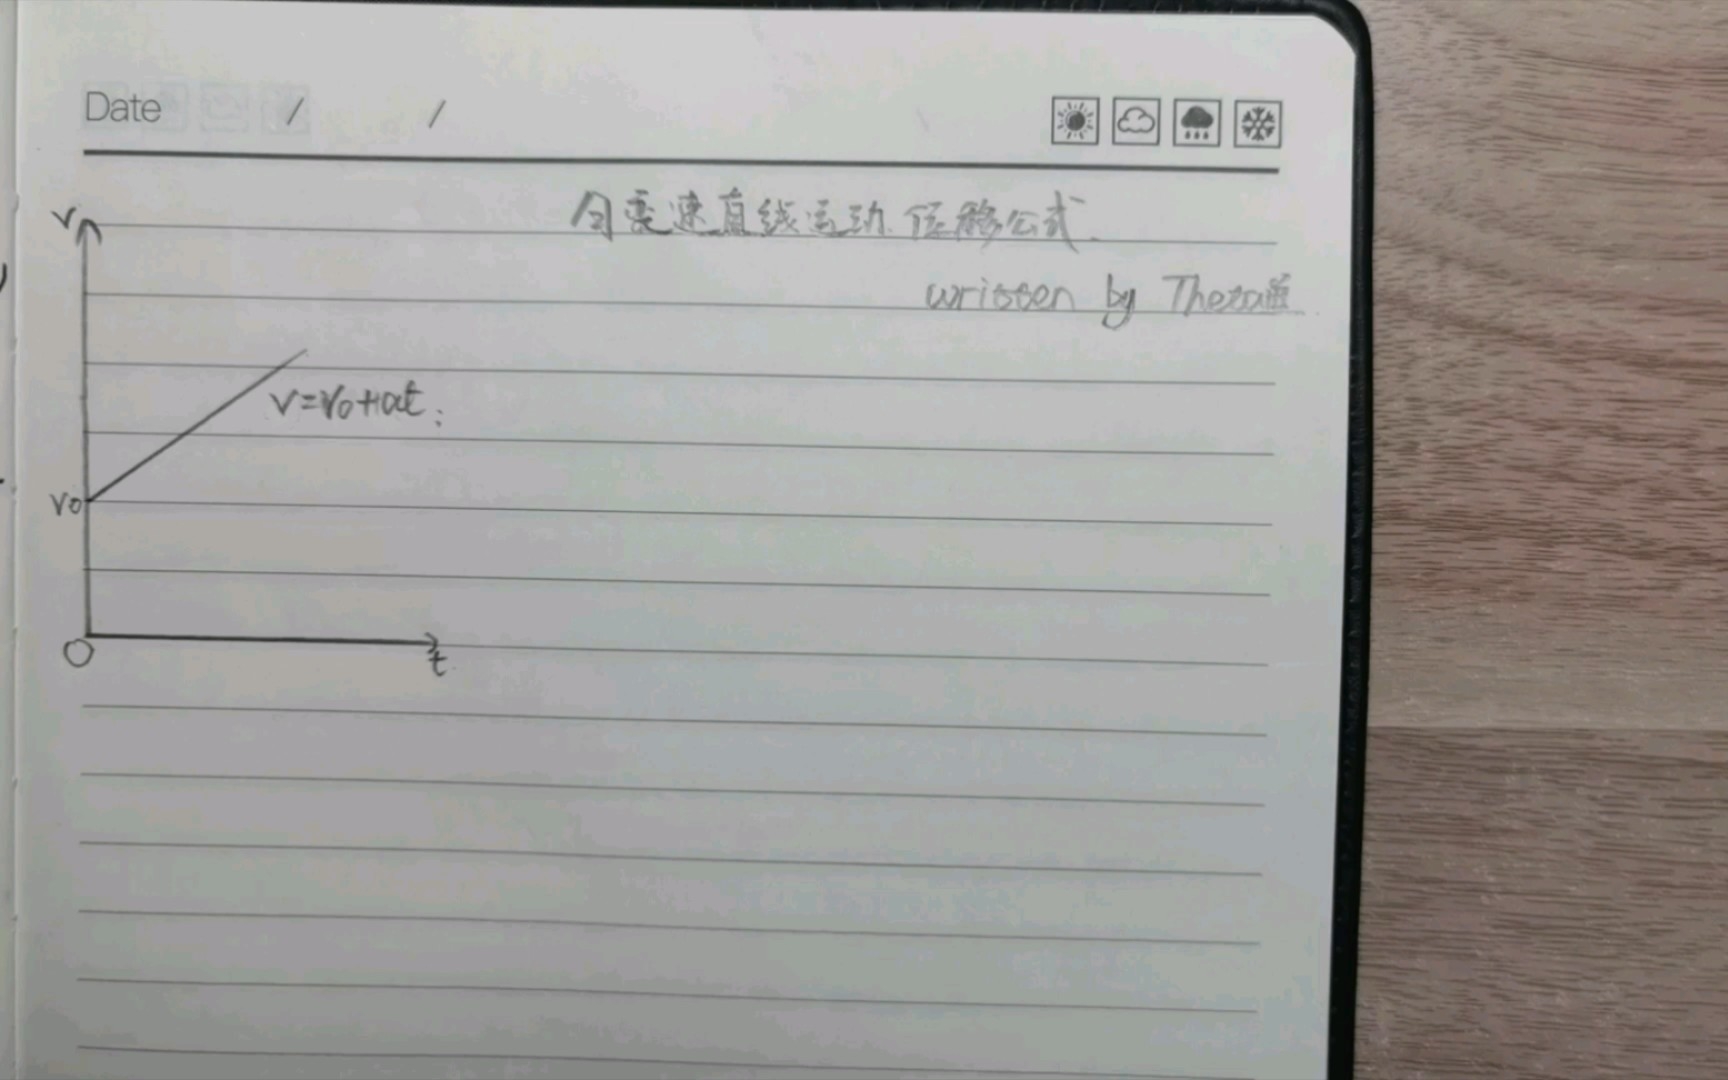 Date / /
匀变速直线运动 位移公式.
written by Theta
v
v=v0+at;
v0
O
t